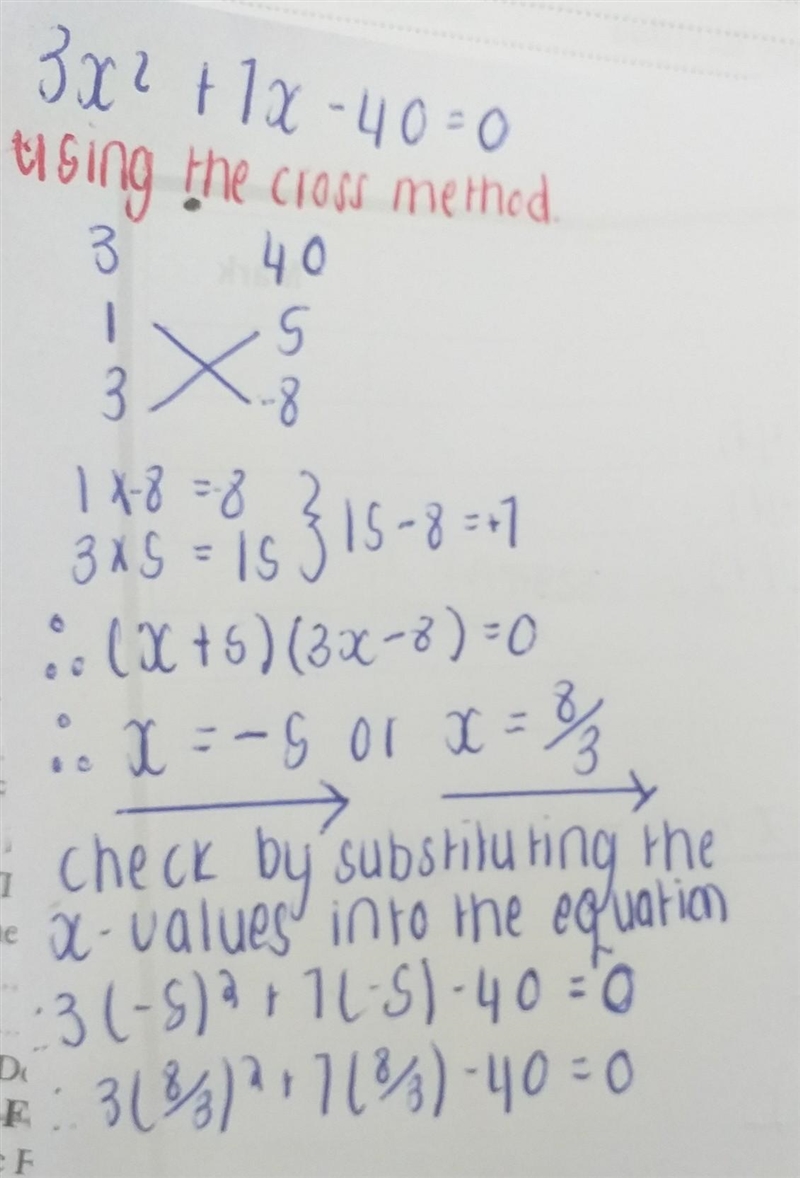 3x² + 7x - 40 = 0
using the cross method.
3 40
1 5
3 -8
1 x -8 = -8
3 x 5 = 15 } 15 - 8 = +7
∴ (x + 5)(3x - 8) = 0
∴ x = -5 or x = 8/3
check by substituting the
x-values into the equation
∴ 3(-5)² + 7(-5) - 40 = 0
∴ 3(8/3)² + 7(8/3) - 40 = 0